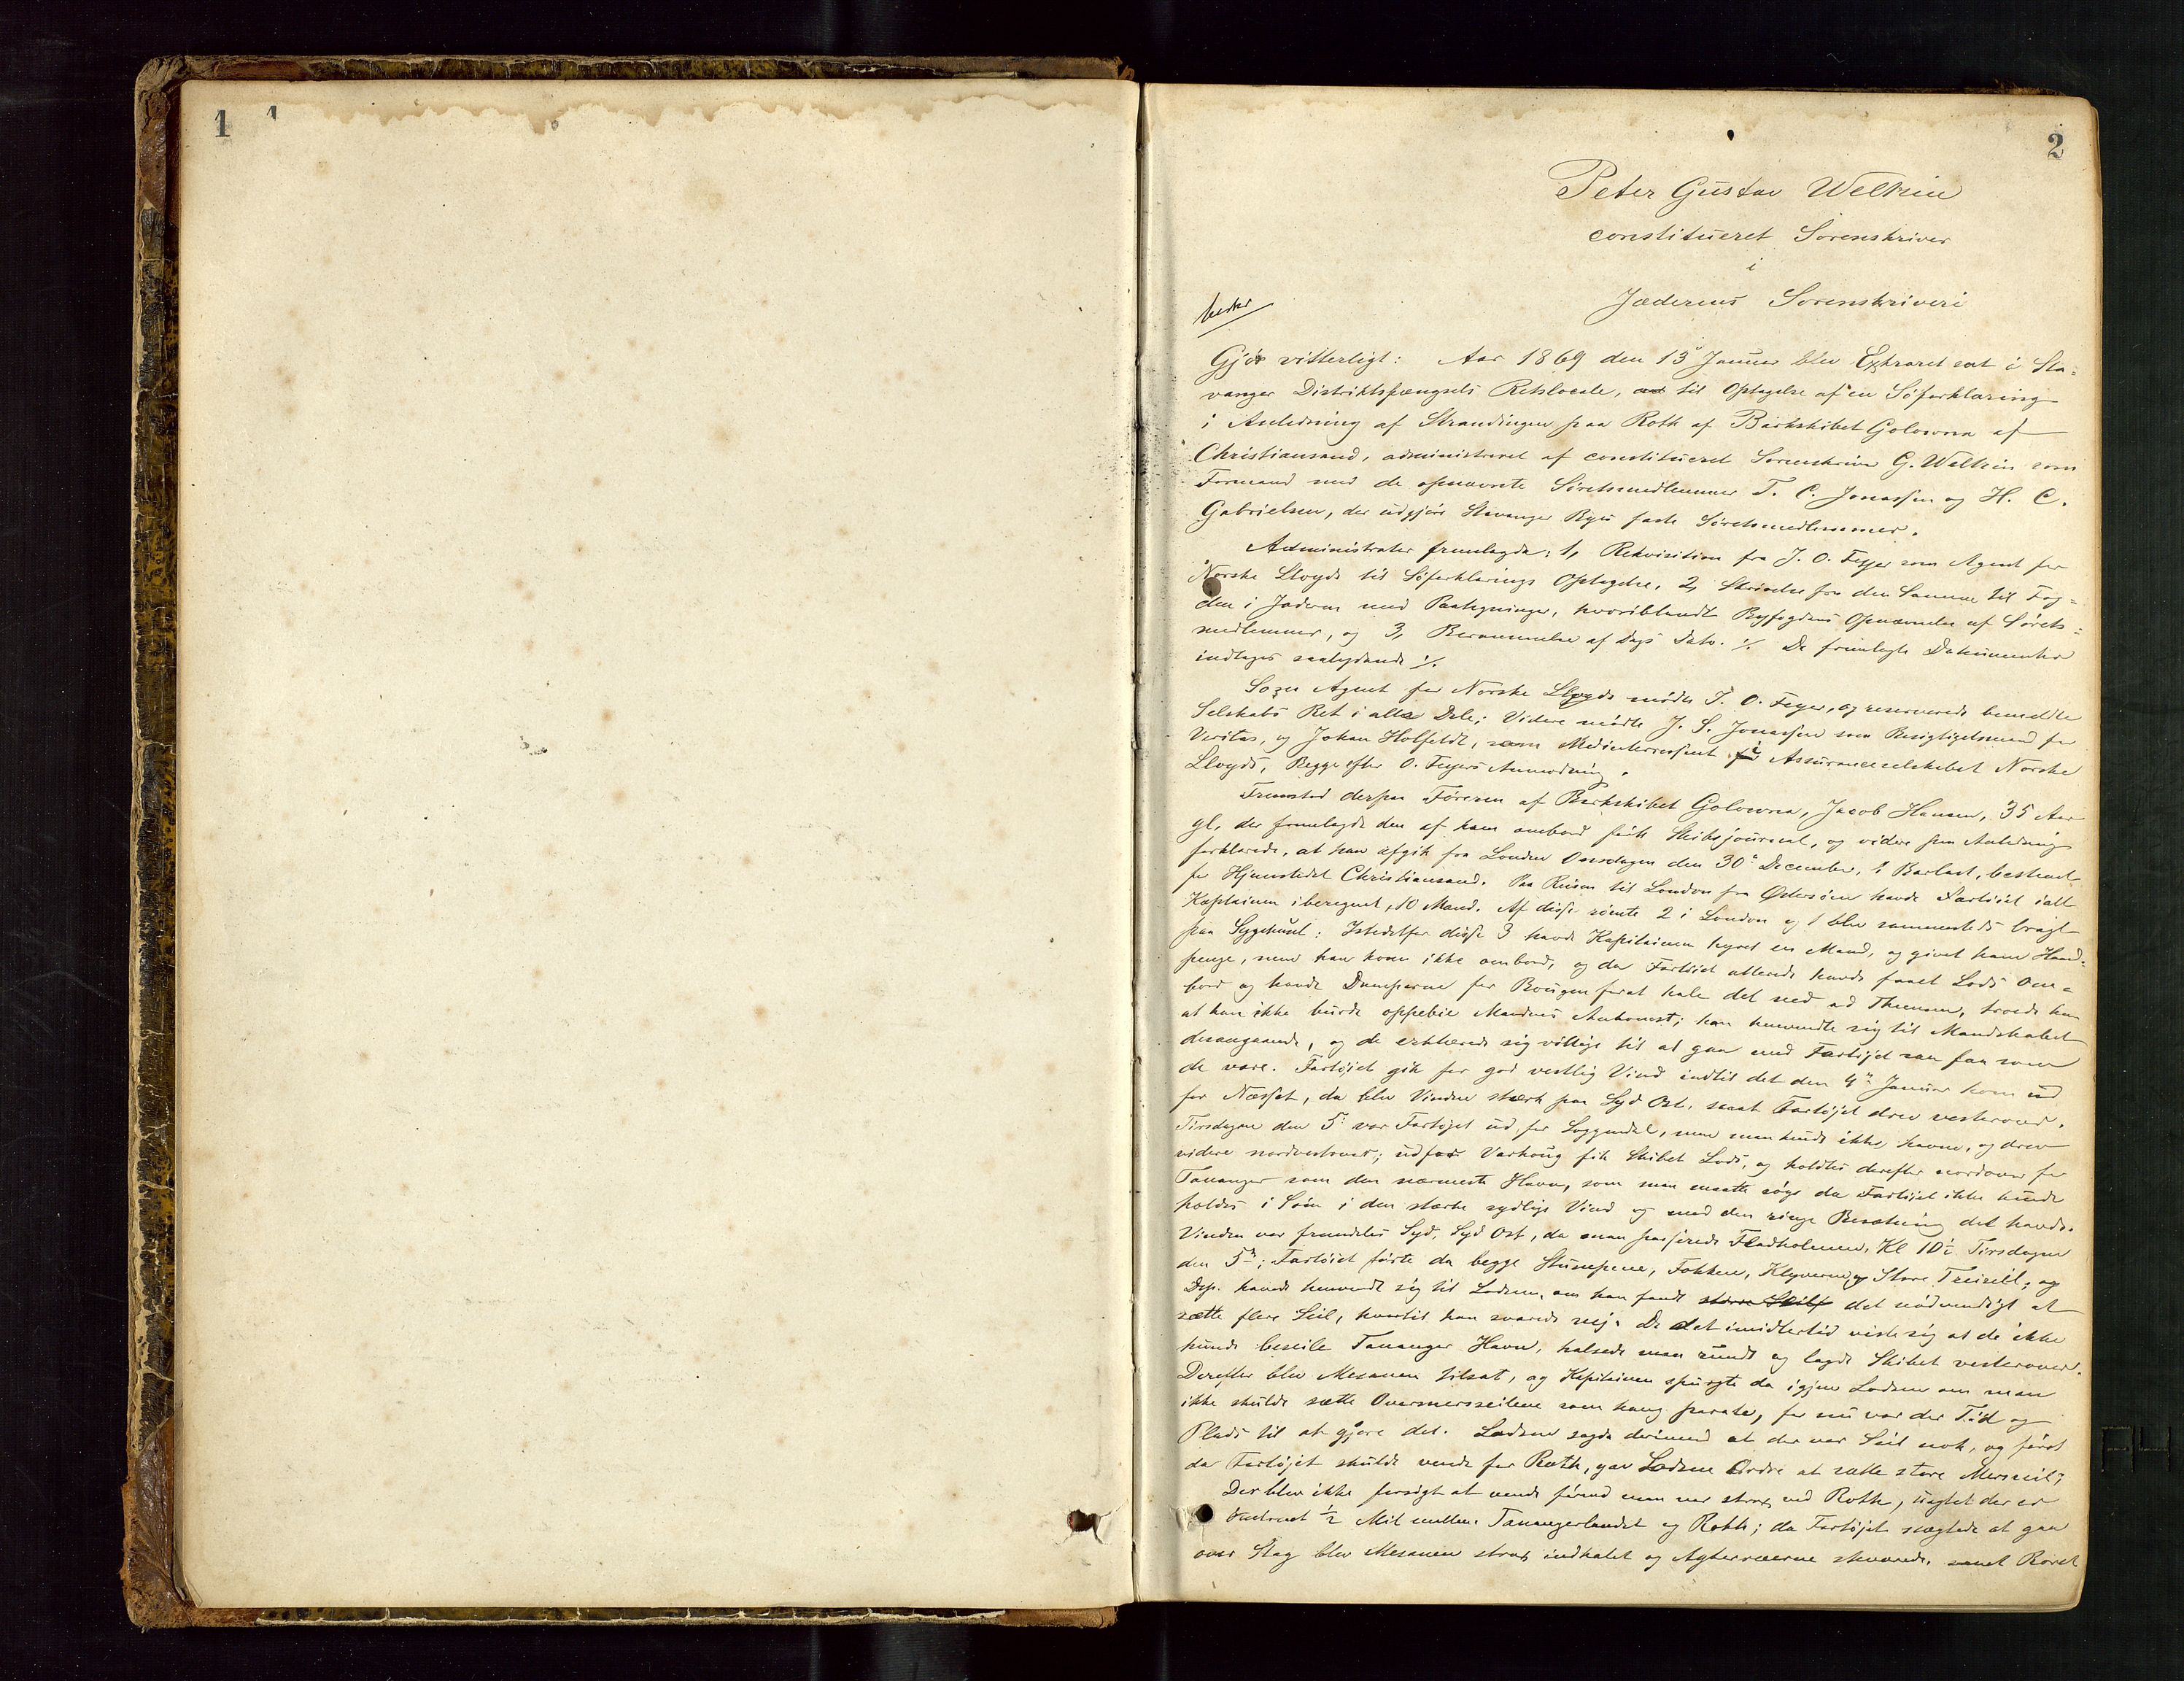 1
2
Peter Gustav Welhin
constitueret Sorenskriver
i
Jæderens Sorenskriveri
Gjör vitterligt: Aar 1869 den 13 Januar blev Extraret sat i Sta-
vanger Distriktsfængsels Retslocale, til Optagelse af en Söforklaring
i Anledning af Strandingen paa Roth af Barkskibet Golowna af
Christiansand, administreret af constitueret Sorenskriver G. Welhin som
Formand med de opnævnte Söretsmedlemmer T. C. Jonassen og H. C.
Gabrielsen, der udgjöre Stavanger Byes faste Söretsmedlemmer.
Administrator fremlagde: 1, Rekvisition fra J. O. Feyer som Agent for
Norske Lloyds til Söforklarings Optagelse, 2, Skrivelse fra den Samme til Fog-
den i Jæderen med Paategninger, hvoriblandt Byfogdens Opnævnelse af Sörets-
medlemmer, og 3, Berammelse af Dags Dato. ./. De fremlagte Dokumenter
indtages saalydende ./.
Som Agent for Norske Lloyds mödte J. O. Feyer, og reserverede bemeldte
Selskabs Ret i alle Dele; Videre mödte J. S. Jonassen som Besigtigelsmand for
Veritas, og Johan Holfeldt, som Medinteressent i Assuranceselskabet Norske
Lloyds, Begge efter O. Feyers Anmodning.
Fremstod derpaa Föreren af Barkskibet Golowna, Jacob Hansen, 35 Aar
gl, der fremlagde den af ham ombord förte Skibsjournal, og videre paa Anledning
forklarede, at han afgik fra London Onsdagen den 30 December, i Barlast, bestemt
for Hjemstedet Christiansand. Paa Reisen til London fra Östersöen havde Fartöiet ialt
Kaptainen iberegnet, 10 Mand. Af disse römte 2 i London og 1 blev sammesteds bragt
paa Sygehuset: Istedetfor disse 3 havde Kapitainen hyret en Mand, og givet ham Haand-
penge, men han kom ikke ombord, og da Fartöiet allerede havde faaet Lods om-
bord og havde Damperne for Bougen forat hale det ned ad Themsen, troede han
at han ikke burde oppebie Mandens Ankomst; han henvendte sig til Mandskabet
desangaaende, og de erklærede sig villige til at gaa med Fartöjet saa faa som
de vare. Fartöjet gik for god vestlig Vind indtil det den 4 Januar kom ud
for Næsset, da blev Vinden stærk paa Syd Ost, saaat Fartöjet drev vestover.
Tirsdagen den 5 var Fartöjet ud for Soggendal, men man kunde ikke havne, og drev
videre nordvestover; udfor Varhoug fik Skibet Lods, og holdtes derefter nordover for
Tananger som den nærmeste Havn, som man maatte söge da Fartöiet ikke kunde
holdes i Söen i den stærke sydlige Vind og med den ringe Besætning det havde.
Vinden var fremdeles Syd, Syd Ost, da man passerede Fladholmen, Kl 10½ Tirsdagen
den 5; Fartöiet förte da begge Stumpene, Fokken, Klyveren og Store Treiseil; og
Dep. havde henvendt sig til Lodsen, om han fandt det nödvendigt at
sætte flere Seil, hvortil han svarede nej. Da det imidlertid viste sig at de ikke
kunde beseile Tananger Havn, halsede man rundt og lagde Skibet vestover.
Derefter blev Mesanen tilsat, og Kapitainen spurgte da igjen Lodsen om man
ikke skulde sætte Overmersseilene som hang parate, for nu var der Tid og
Plads til at gjöre det. Lodsen sagde derimod at der var Seil nok, og först
da Fartöjet skulde vende for Roth, gav Lodsen Ordre at sætte store Mersseil;
Der blev ikke forsögt at vende förend man var strax ved Roth, uagtet der er
½ Mil mellem Tanangerlandet og Roth; da Fartöjet nægtede at gaa
over Stag blev Mesanen strax indhalet og Agterræerne skværede, samt Roret